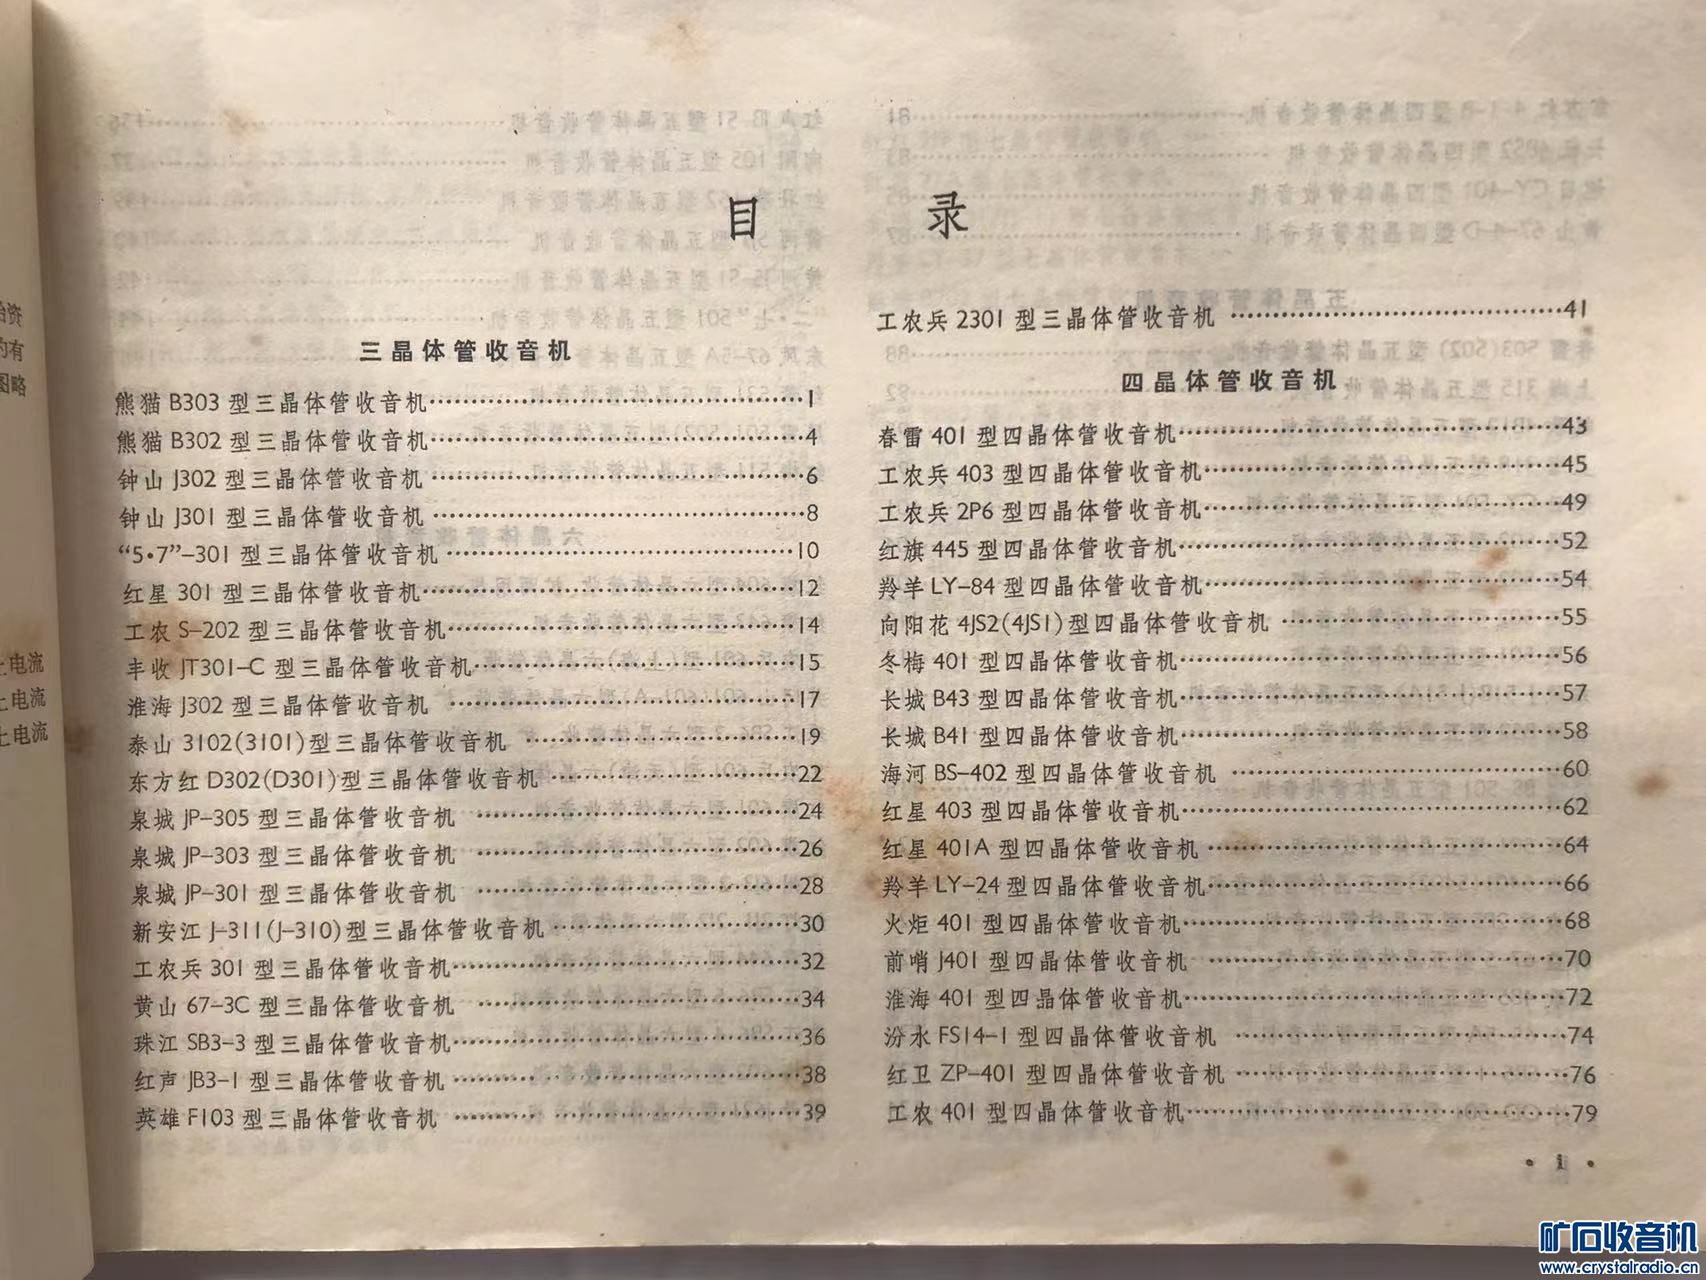 目录
三晶体管收音机
熊猫 B303 型三晶体管收音机……1
熊猫 B302 型三晶体管收音机……4
钟山 J302 型三晶体管收音机……6
钟山 J301 型三晶体管收音机……8
“5·7”-301 型三晶体管收音机……10
红星 301 型三晶体管收音机……12
工农 S-202 型三晶体管收音机……14
丰收 JT301-C 型三晶体管收音机……15
淮海 J302 型三晶体管收音机……17
泰山 3102(3101)型三晶体管收音机……19
东方红 D302(D301)型三晶体管收音机……22
泉城 JP-305 型三晶体管收音机……24
泉城 JP-303 型三晶体管收音机……26
泉城 JP-301 型三晶体管收音机……28
新安江 J-311(J-310)型三晶体管收音机……30
工农兵 301 型三晶体管收音机……32
黄山 67-3C 型三晶体管收音机……34
珠江 SB3-3 型三晶体管收音机……36
红声 JB3-1 型三晶体管收音机……38
英雄 F103 型三晶体管收音机……39
工农兵 2301 型三晶体管收音机……41
四晶体管收音机
春雷 401 型四晶体管收音机……43
工农兵 403 型四晶体管收音机……45
工农兵 2P6 型四晶体管收音机……49
红旗 445 型四晶体管收音机……52
羚羊 LY-84 型四晶体管收音机……54
向阳花 4JS2(4JS1)型四晶体管收音机……55
冬梅 401 型四晶体管收音机……56
长城 B43 型四晶体管收音机……57
长城 B41 型四晶体管收音机……58
海河 BS-402 型四晶体管收音机……60
红星 403 型四晶体管收音机……62
红星 401A 型四晶体管收音机……64
羚羊 LY-24 型四晶体管收音机……66
火炬 401 型四晶体管收音机……68
前哨 J401 型四晶体管收音机……70
淮海 401 型四晶体管收音机……72
汾水 FS14-1 型四晶体管收音机……74
红卫 ZP-401 型四晶体管收音机……76
工农 401 型四晶体管收音机……79
· 1 ·
资
有
图略
电流
上电流
上电流
矿石收音机
www.crystalradio.cn